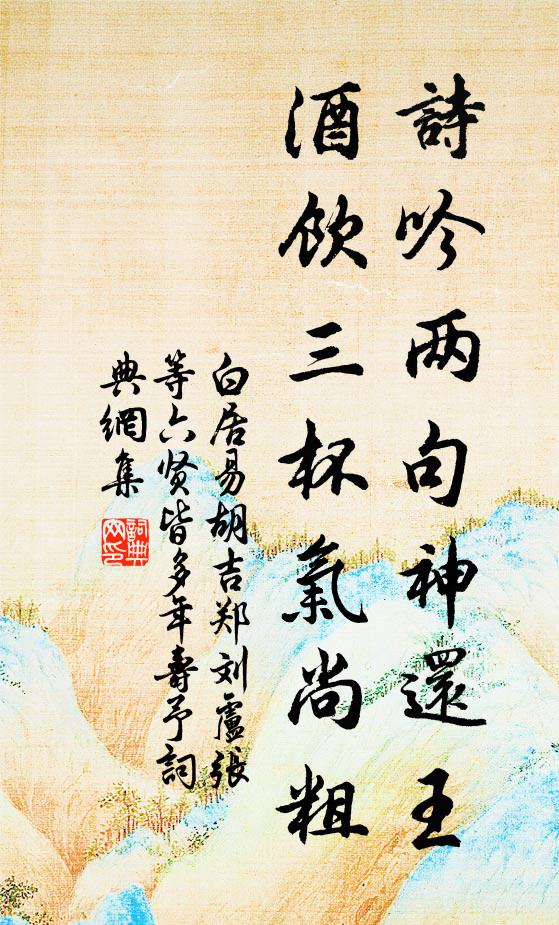 詩吟两句神還王
酒飲三杯氣尚粗
白居易胡吉郑刘盧張
等六贤皆多年壽予詞
典網集
詞典
网印